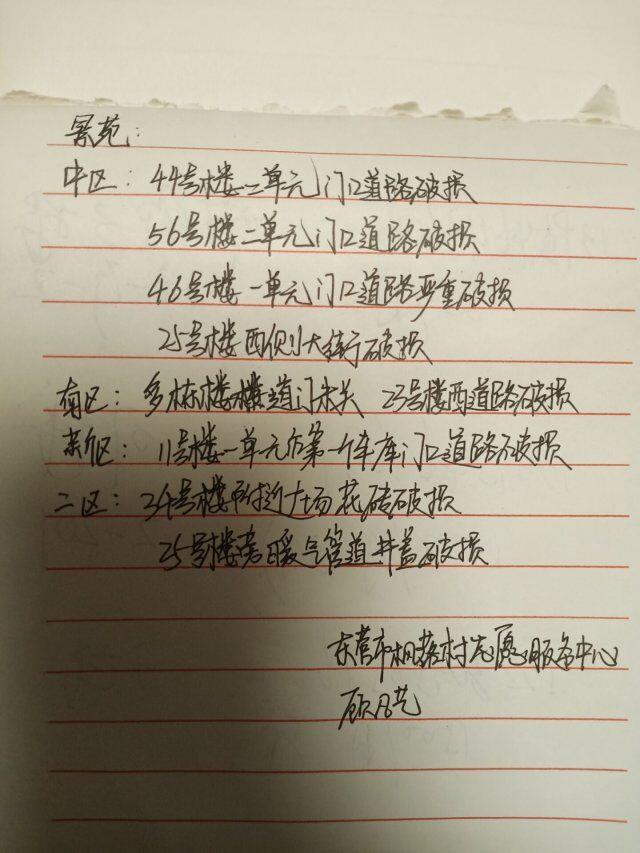 景苑：
中区：44号楼二单元门口道路破损
56号楼二单元门口道路破损
46号楼一单元门口道路严重破损
25号楼西侧大街破损
南区：多栋楼楼道门未关 23号楼西道路破损
新区：11号楼一单元前第一个车库门口道路破损
二区：34号楼附近广场花砖破损
25号楼旁暖气管道井盖破损
东营市枫若村志愿服务中心
顾凡艺